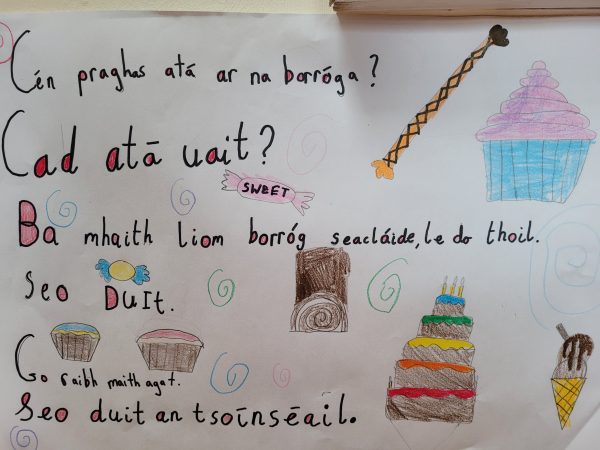 Cén praghas atá ar na borróga?
Cad atá uait?
SWEET
Ba mhaith liom borróg seacláide, le do thoil.
Seo Duit.
Go raibh maith agat.
Seo duit an tsóinséail.